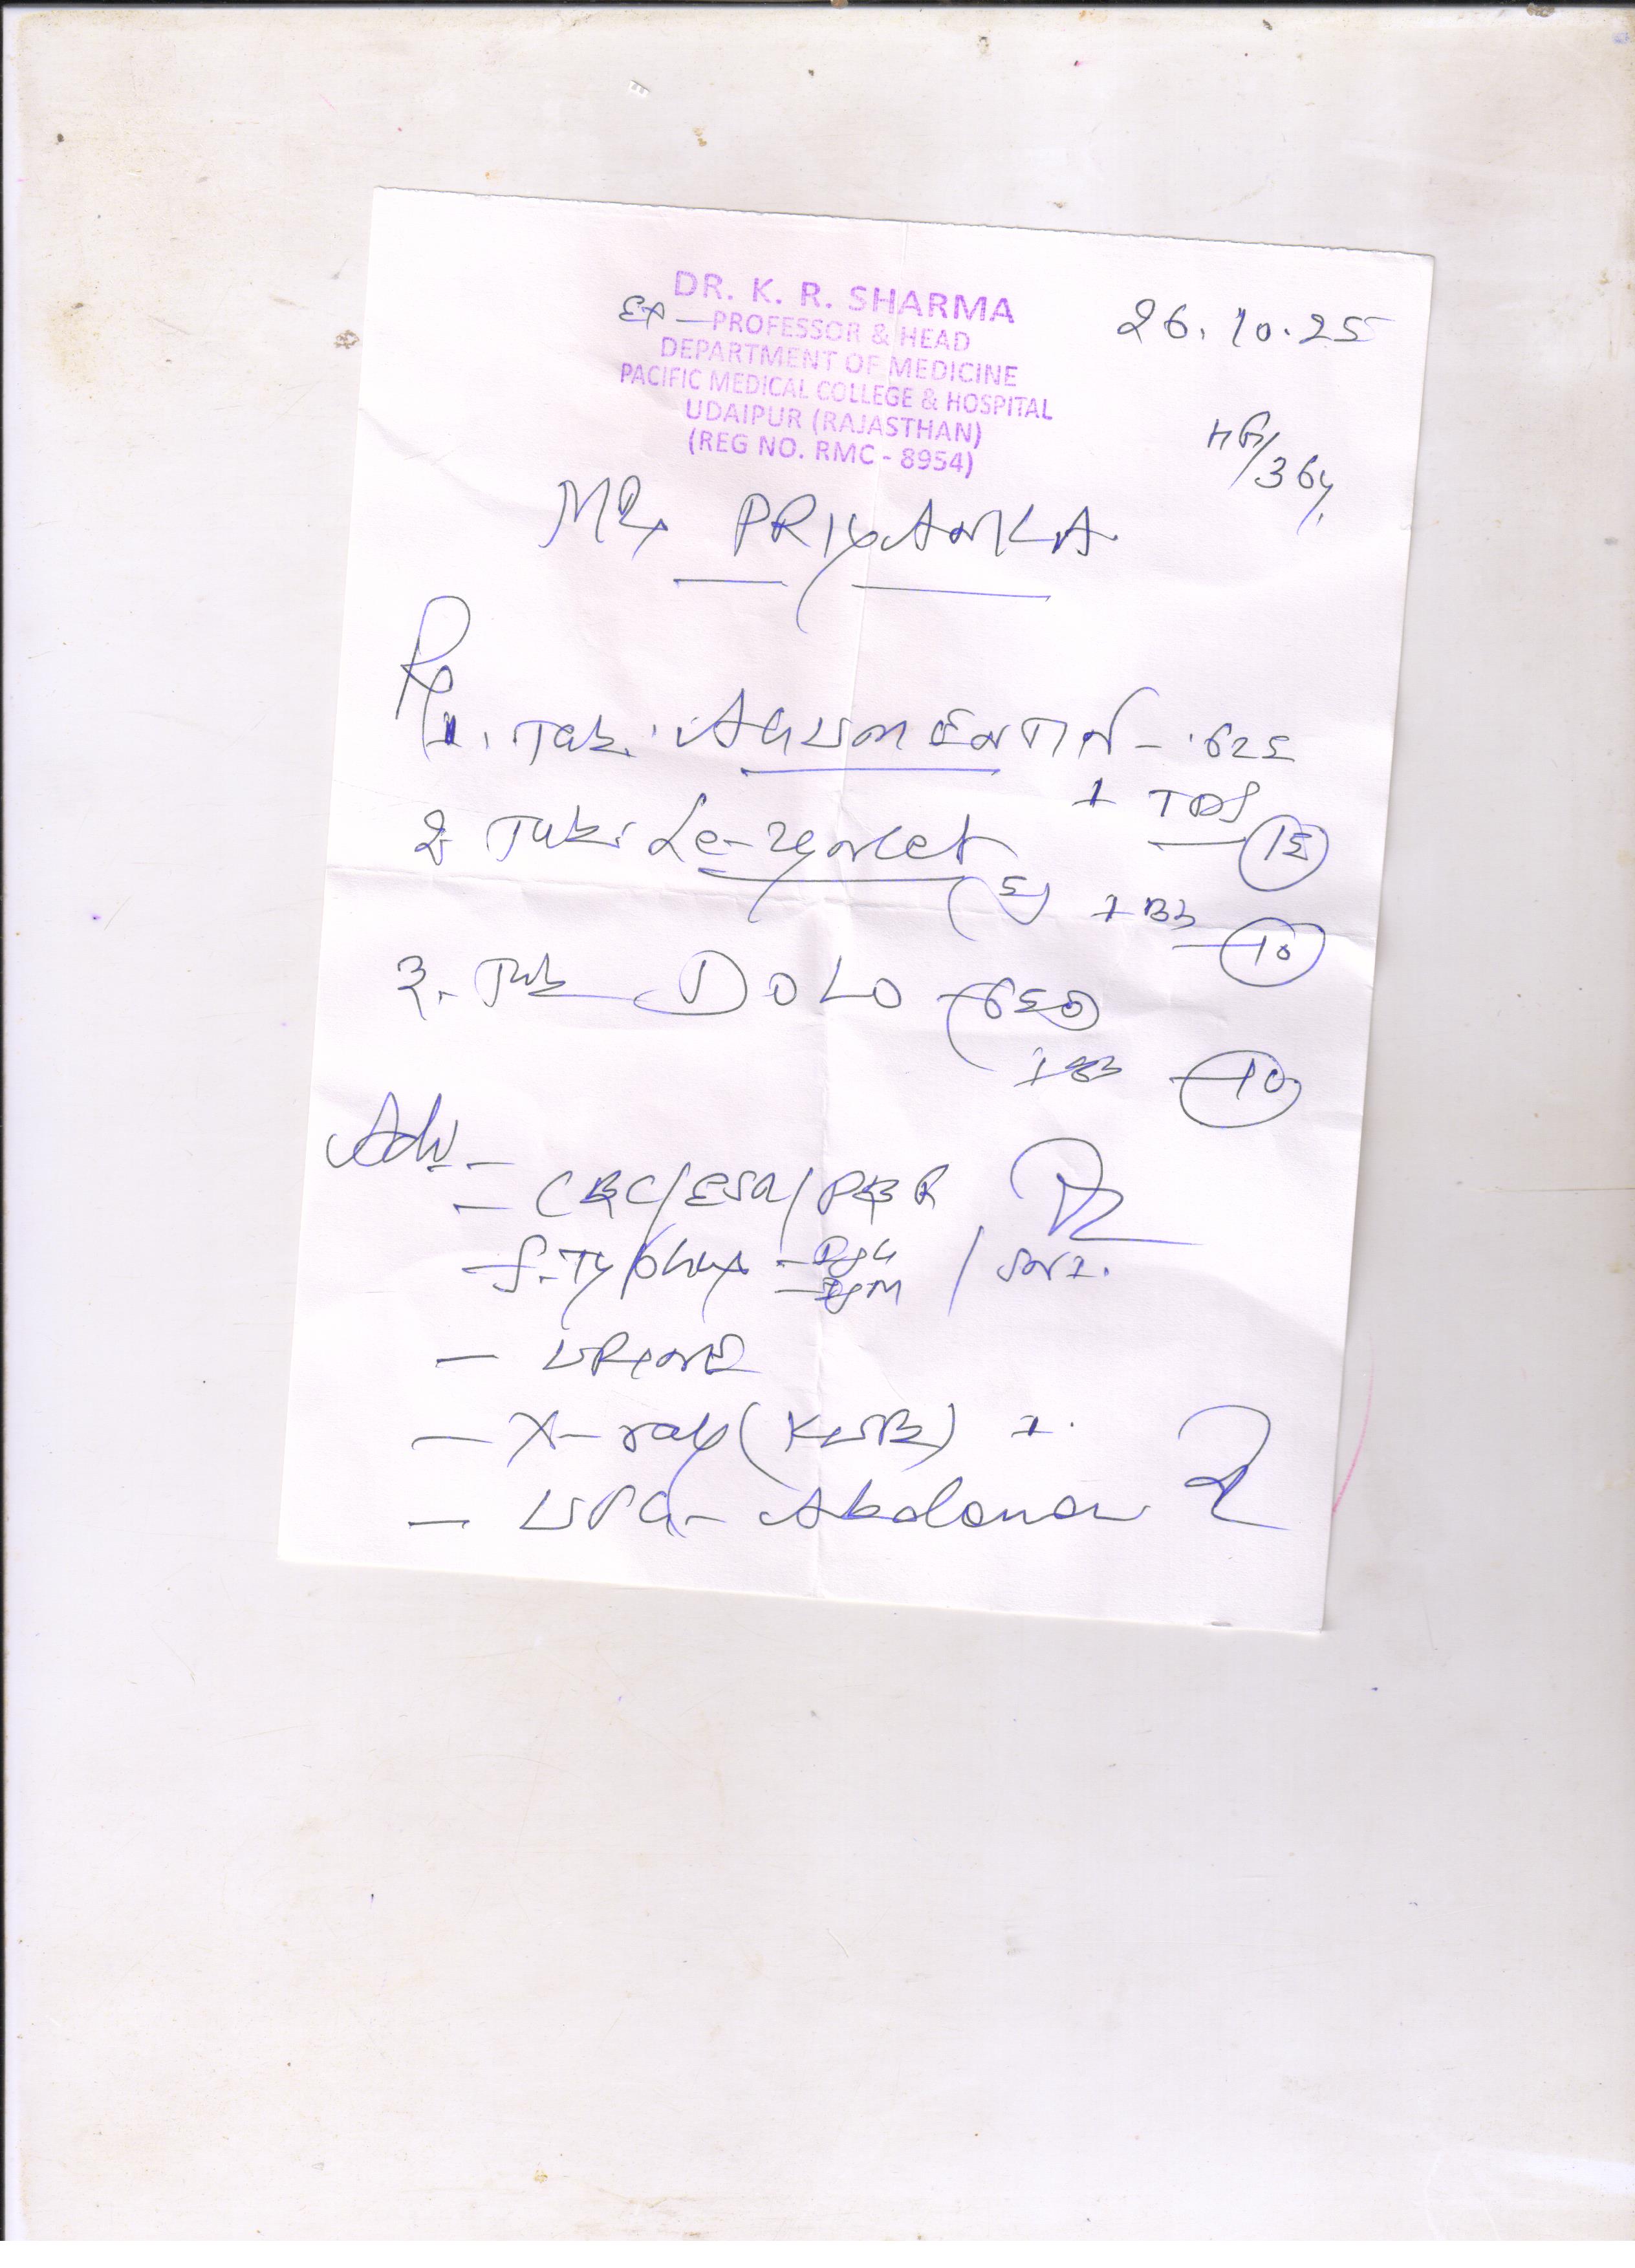 DR. K. R. SHARMA
EX - PROFESSOR & HEAD
DEPARTMENT OF MEDICINE
PACIFIC MEDICAL COLLEGE & HOSPITAL
UDAIPUR (RAJASTHAN)
(REG NO. RMC - 8954)
26.10.25
36y
PRIYANKA
Rx
1. Tab. AUGMENTIN - 625
1 TDS 15
2 Tab. Le-zyncet
(5) 1 BD 10
3. Tab DOLO - 650
1 BD 10
Adv -
- CBC/ESR/PBF
- S. Typhi - IgG
- IgM
- URINE
- X-ray (KUB)
- USG - Abdomen